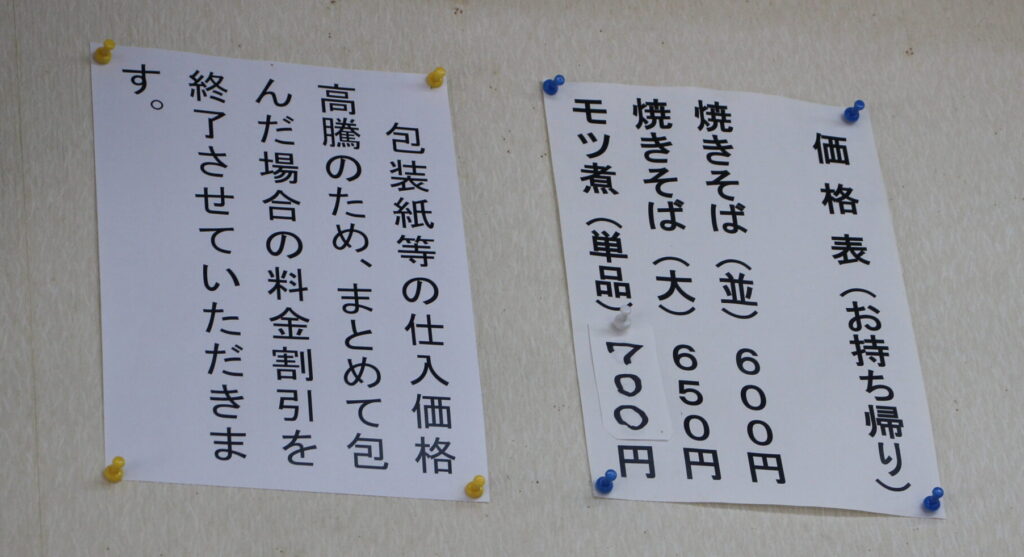 価格表(お持ち帰り)
焼きそば(並)600円
焼きそば(大)650円
モツ煮(単品)700円
包装紙等の仕入価格
高騰のため、まとめて包
んだ場合の料金割引を
終了させていただきま
す。